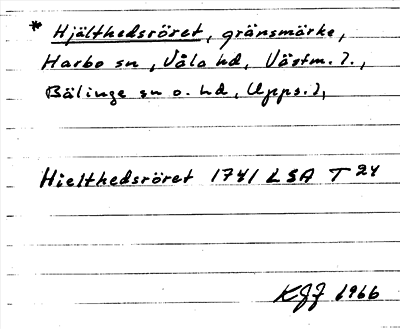 * Hjälthedsröret, gränsmärke,
Harbo sn, Våla hd, Västm. l.,
Bälinge sn o. hd, Upps. l,
Hielthedsröret 1741 LSA T 24
KGJ 1966